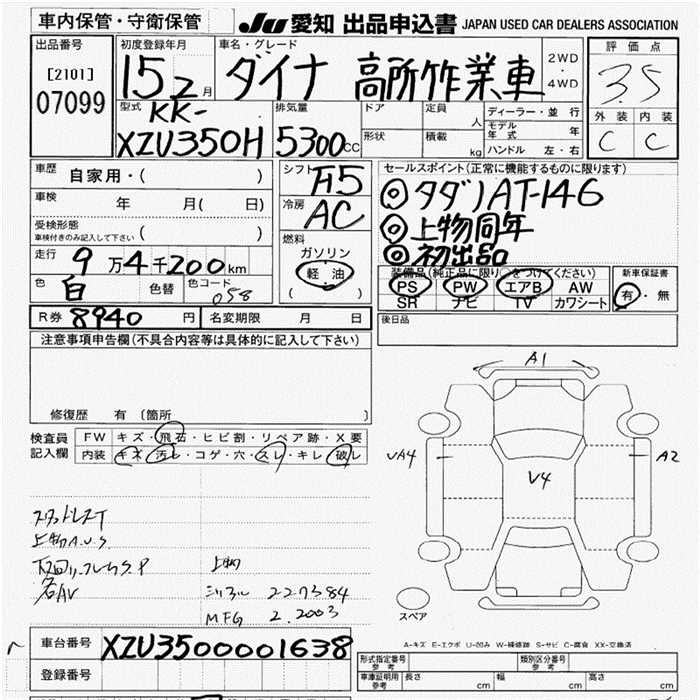 車内保管・守衛保管
JU 愛知 出品申込書 JAPAN USED CAR DEALERS ASSOCIATION
出品番号
[2101]
07099
初度登録年月
15 2月
車名・グレード
ダイナ 高所作業車
2WD
・
4WD
評価点
3.5
外装 内装
C C
型式
KK-
XZU350H
排気量
5300cc
ドア
形状
定員 人
積載 kg
ディーラー・並行
モデル年式 年
ハンドル 左・右
車歴
自家用・( )
車検
年 月( 日)
受検形態
車検付きのみ記入して下さい ( )
走行
9万4千200km
色
白
色替
色コード
058
シフト
F5
冷房
AC
燃料
ガソリン
軽油
( )
セールスポイント(正常に機能するものに限ります)
◎タダノAT-146
◎上物同年
◎初出品
装備品(純正品に限り○をつけてください)
PS PW エアB AW
SR ナビ TV カワシート
新車保証書
有・無
R券 8940円
名変期限 月 日
後日品
注意事項申告欄(不具合内容等は具体的に記入して下さい)
修復歴 有 〔箇所 〕
検査員
記入欄
FW キズ・飛石・ヒビ割・リペア跡・X要
内装 キズ・汚レ・コゲ・穴・スレ・キレ・破レ
上物A.U.S
名AV
上物
シリアル 227384
MFG 2.2003
A1
UA4
A2
V4
スペア
A-キズ E-エクボ U-凹み W-補修跡 S-サビ C-腐食 XX-交換済
車台番号 XZU3500001638
登録番号
形式指定番号
参考
類別区分番号
参考
車庫証明用
参考
長さ cm
幅 cm
高さ cm